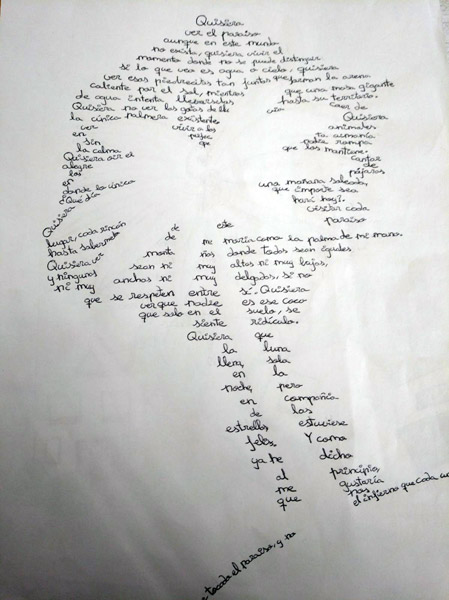 Quisiera
ver el paraiso
aunque en este mundo
no exista, quisiera vivir el
momento donde no se puede distinguir
si lo que veo es agua o cielo, quisiera
ver esas piedrecitas tan juntas que forman la arena
caliente por el sol, mientras que una masa gigante
de agua intenta llevárselas hasta su territorio.
Quisiera no ver las gotas de lluvia caer de
la única palmera existente Quisiera
ver vivir a los animales
en perfec ta armonía
sin que nadie rompa
la calma que los mantiene.
Quisiera oír el cantar
alegre de
los pájaros
en una mañana soleada,
donde lo único que importe sea
¿Qué día hará hoy?.
Quisiera visitar cada
lugar, cada rincón de este paraiso
hasta sabermelo de me moria como la palma de mi mano.
Quisiera ver monta ñas donde todas sean iguales
y ningunas sean ni muy altas ni muy bajas,
ni muy anchas ni muy delgadas, si no
que se respeten entre sí. Quisiera
ver que nadie es ese coco
que solo en el suelo, se
siente ridículo.
Quisiera que
la luna
llena, sola
en la
noche, pero
en compañía
de las
estrellas, estuviese
feliz. Y como
ya he dicho
al principio,
me gustaría
que nos
el infierno que cada un
tocado el paraiso, y no